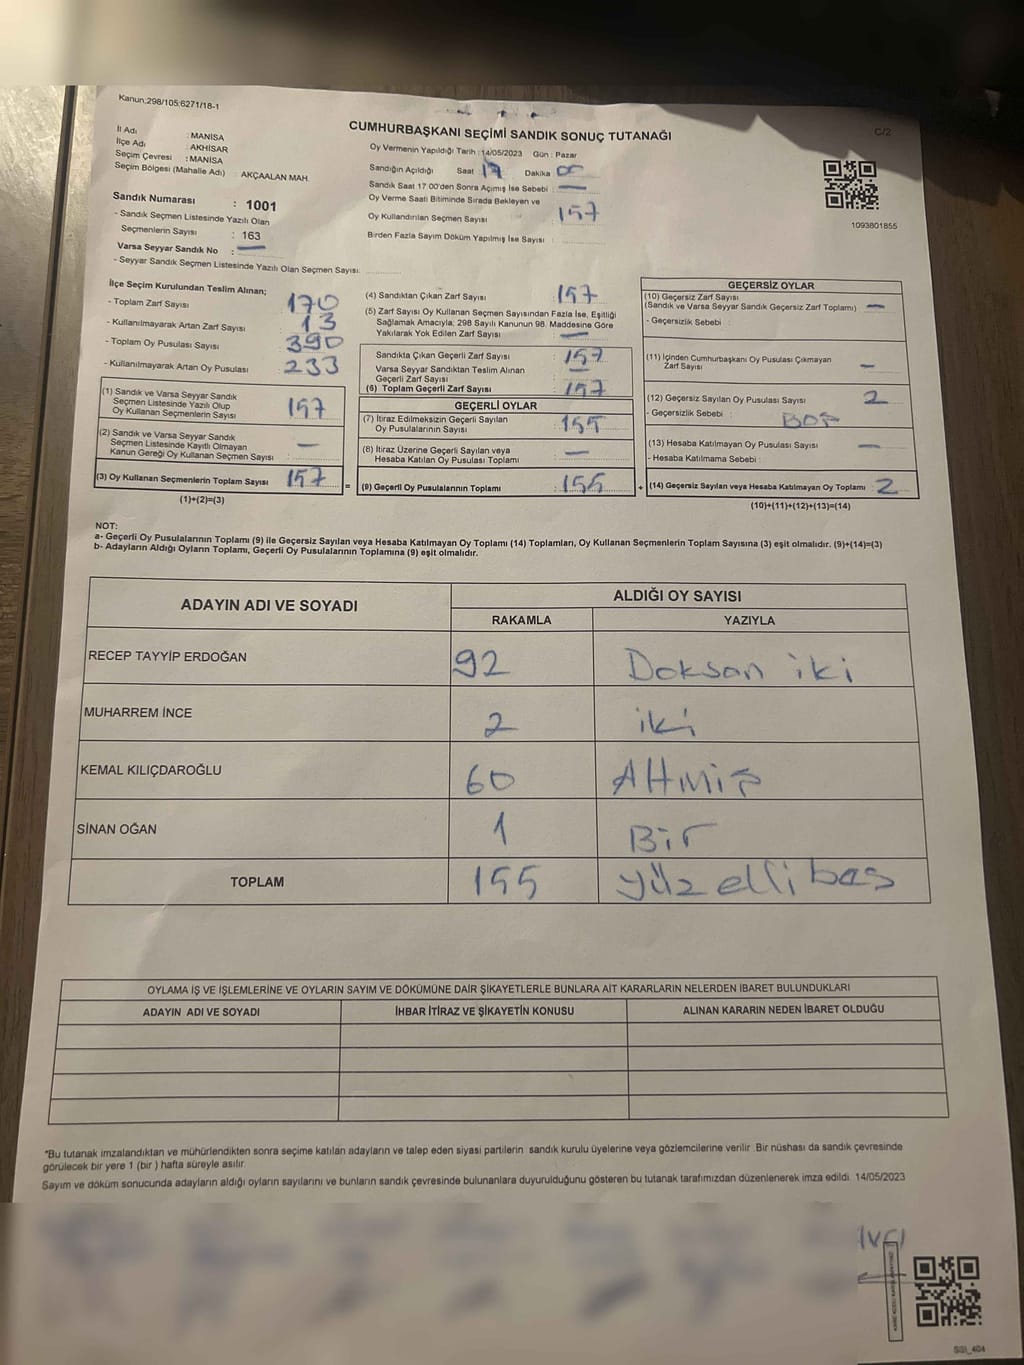 Kanun:298/105:6271/18-1
C/2
CUMHURBAŞKANI SEÇİMİ SANDIK SONUÇ TUTANAĞI
İl Adı : MANİSA
İlçe Adı : AKHİSAR
Seçim Çevresi : MANİSA
Seçim Bölgesi (Mahalle Adı) : AKÇAALAN MAH.
Sandık Numarası : 1001
- Sandık Seçmen Listesinde Yazılı Olan
Seçmenlerin Sayısı : 163
Varsa Seyyar Sandık No : —
- Seyyar Sandık Seçmen Listesinde Yazılı Olan Seçmen Sayısı:
Oy Vermenin Yapıldığı Tarih : 14/05/2023 Gün : Pazar
Sandığın Açıldığı Saat 17 Dakika 00
Sandık Saat 17:00'den Sonra Açımış İse Sebebi : —
Oy Verme Saati Bitiminde Sırada Bekleyen ve
Oy Kullandırılan Seçmen Sayısı : 157
Birden Fazla Sayım Döküm Yapılmış İse Sayısı :
1093801855
İlçe Seçim Kurulundan Teslim Alınan;
- Toplam Zarf Sayısı : 170
- Kullanılmayarak Artan Zarf Sayısı : 13
- Toplam Oy Pusulası Sayısı : 390
- Kullanılmayarak Artan Oy Pusulası : 233
(1) Sandık ve Varsa Seyyar Sandık
Seçmen Listesinde Yazılı Olup
Oy Kullanan Seçmenlerin Sayısı : 157
(2) Sandık ve Varsa Seyyar Sandık
Seçmen Listesinde Kayıtlı Olmayan
Kanun Gereği Oy Kullanan Seçmen Sayısı : —
(3) Oy Kullanan Seçmenlerin Toplam Sayısı : 157
(1)+(2)=(3)
(4) Sandıktan Çıkan Zarf Sayısı : 157
(5) Zarf Sayısı Oy Kullanan Seçmen Sayısından Fazla İse, Eşitliği
Sağlamak Amacıyla, 298 Sayılı Kanunun 98. Maddesine Göre
Yakılarak Yok Edilen Zarf Sayısı : —
Sandıkta Çıkan Geçerli Zarf Sayısı : 157
Varsa Seyyar Sandıktan Teslim Alınan
Geçerli Zarf Sayısı : —
(6) Toplam Geçerli Zarf Sayısı : 157
GEÇERLİ OYLAR
(7) İtiraz Edilmeksizin Geçerli Sayılan
Oy Pusulalarının Sayısı : 155
(8) İtiraz Üzerine Geçerli Sayılan veya
Hesaba Katılan Oy Pusulası Toplamı : —
= (9) Geçerli Oy Pusulalarının Toplamı : 155 +
GEÇERSİZ OYLAR
(10) Geçersiz Zarf Sayısı
(Sandık ve Varsa Seyyar Sandık Geçersiz Zarf Toplamı) : —
- Geçersizlik Sebebi :
(11) İçinden Cumhurbaşkanı Oy Pusulası Çıkmayan
Zarf Sayısı : —
(12) Geçersiz Sayılan Oy Pusulası Sayısı : 2
- Geçersizlik Sebebi : BOŞ
(13) Hesaba Katılmayan Oy Pusulası Sayısı : —
- Hesaba Katılmama Sebebi :
(14) Geçersiz Sayılan veya Hesaba Katılmayan Oy Toplamı : 2
(10)+(11)+(12)+(13)=(14)
NOT:
a- Geçerli Oy Pusulalarının Toplamı (9) ile Geçersiz Sayılan veya Hesaba Katılmayan Oy Toplamı (14) Toplamları, Oy Kullanan Seçmenlerin Toplam Sayısına (3) eşit olmalıdır. (9)+(14)=(3)
b- Adayların Aldığı Oyların Toplamı, Geçerli Oy Pusulalarının Toplamına (9) eşit olmalıdır.
ADAYIN ADI VE SOYADI ALDIĞI OY SAYISI
RAKAMLA YAZIYLA
RECEP TAYYİP ERDOĞAN 92 Doksan iki
MUHARREM İNCE 2 iki
KEMAL KILIÇDAROĞLU 60 Altmiş
SİNAN OĞAN 1 Bir
TOPLAM 155 yüz elli beş
OYLAMA İŞ VE İŞLEMLERİNE VE OYLARIN SAYIM VE DÖKÜMÜNE DAİR ŞİKAYETLERLE BUNLARA AİT KARARLARIN NELERDEN İBARET BULUNDUKLARI
ADAYIN ADI VE SOYADI İHBAR İTİRAZ VE ŞİKAYETİN KONUSU ALINAN KARARIN NEDEN İBARET OLDUĞU
*Bu tutanak imzalandıktan ve mühürlendikten sonra seçime katılan adayların ve talep eden siyasi partilerin sandık kurulu üyelerine veya gözlemcilerine verilir. Bir nüshası da sandık çevresinde
görülecek bir yere 1 (bir ) hafta süreyle asılır.
Sayım ve döküm sonucunda adayların aldığı oyların sayılarını ve bunların sandık çevresinde bulunanlara duyurulduğunu gösteren bu tutanak tarafımızdan düzenlenerek imza edildi. 14/05/2023
SGI_404